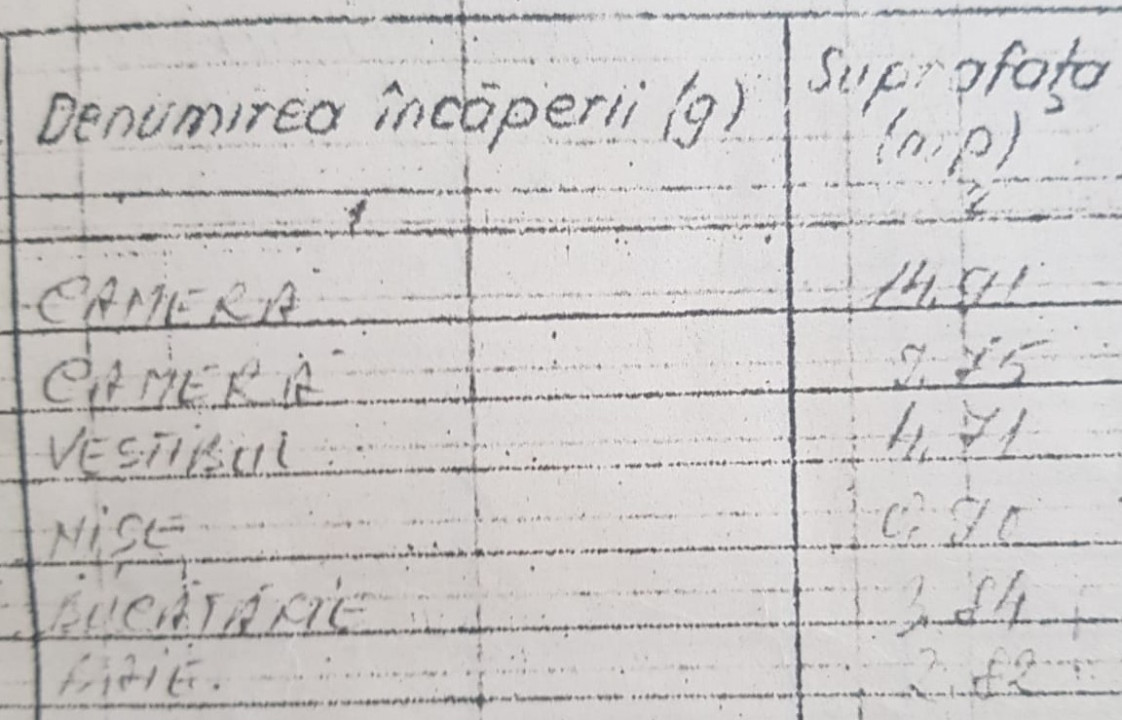 Denumirea încăperii (g) Suprafața
(m.p)
1 2
CAMERA 14,91
CAMERA
VESTIBUL 4,71
NIȘE
BUCĂTĂRIE
BAIE.